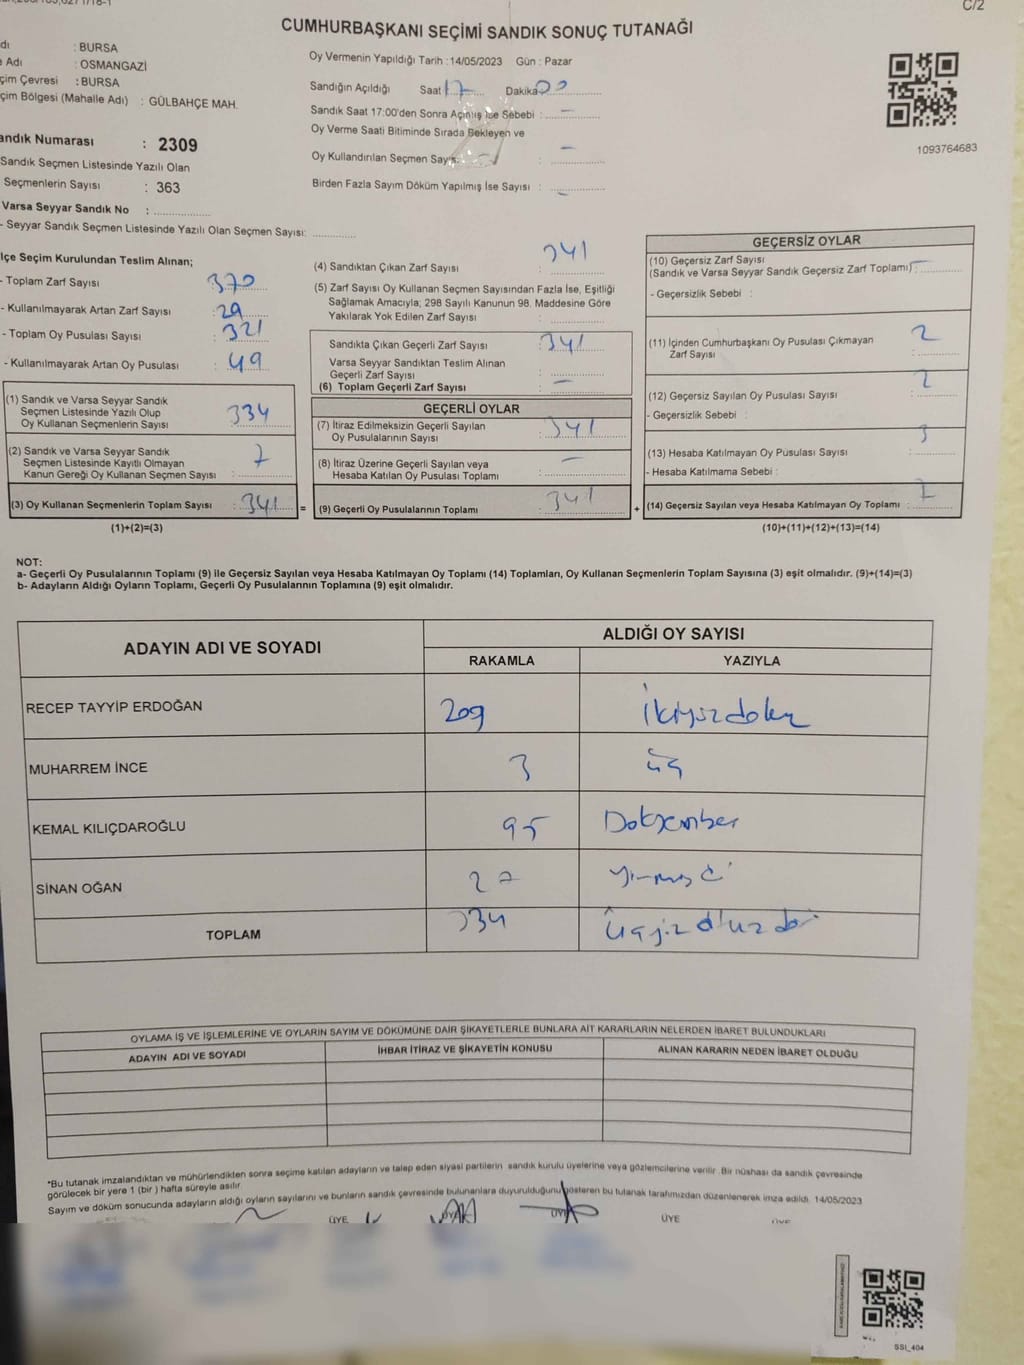 C/2
CUMHURBAŞKANI SEÇİMİ SANDIK SONUÇ TUTANAĞI
: BURSA
Adı : OSMANGAZİ
çim Çevresi : BURSA
çim Bölgesi (Mahalle Adı) : GÜLBAHÇE MAH.
andık Numarası : 2309
Sandık Seçmen Listesinde Yazılı Olan
Seçmenlerin Sayısı : 363
Varsa Seyyar Sandık No :
- Seyyar Sandık Seçmen Listesinde Yazılı Olan Seçmen Sayısı:
Oy Vermenin Yapıldığı Tarih :14/05/2023 Gün : Pazar
Sandığın Açıldığı Saat 17 Dakika 00
Sandık Saat 17:00'den Sonra Açılmış İse Sebebi : -
Oy Verme Saati Bitiminde Sırada Bekleyen ve
Oy Kullandırılan Seçmen Sayısı : -
Birden Fazla Sayım Döküm Yapılmış İse Sayısı : -
1093764683
lçe Seçim Kurulundan Teslim Alınan;
- Toplam Zarf Sayısı : 370
- Kullanılmayarak Artan Zarf Sayısı : 29
- Toplam Oy Pusulası Sayısı : 321
- Kullanılmayarak Artan Oy Pusulası : 49
(1) Sandık ve Varsa Seyyar Sandık
Seçmen Listesinde Yazılı Olup
Oy Kullanan Seçmenlerin Sayısı : 334
(2) Sandık ve Varsa Seyyar Sandık
Seçmen Listesinde Kayıtlı Olmayan
Kanun Gereği Oy Kullanan Seçmen Sayısı : 7
(3) Oy Kullanan Seçmenlerin Toplam Sayısı : 341 =
(1)+(2)=(3)
(4) Sandıktan Çıkan Zarf Sayısı : 341
(5) Zarf Sayısı Oy Kullanan Seçmen Sayısından Fazla İse, Eşitliği
Sağlamak Amacıyla; 298 Sayılı Kanunun 98. Maddesine Göre
Yakılarak Yok Edilen Zarf Sayısı :
Sandıkta Çıkan Geçerli Zarf Sayısı : 341
Varsa Seyyar Sandıktan Teslim Alınan
Geçerli Zarf Sayısı :
(6) Toplam Geçerli Zarf Sayısı : -
GEÇERLİ OYLAR
(7) İtiraz Edilmeksizin Geçerli Sayılan
Oy Pusulalarının Sayısı : 341
(8) İtiraz Üzerine Geçerli Sayılan veya
Hesaba Katılan Oy Pusulası Toplamı : -
(9) Geçerli Oy Pusulalarının Toplamı : 341 +
GEÇERSİZ OYLAR
(10) Geçersiz Zarf Sayısı
(Sandık ve Varsa Seyyar Sandık Geçersiz Zarf Toplamı) : -
- Geçersizlik Sebebi :
(11) İçinden Cumhurbaşkanı Oy Pusulası Çıkmayan
Zarf Sayısı : 2
(12) Geçersiz Sayılan Oy Pusulası Sayısı : 2
- Geçersizlik Sebebi :
(13) Hesaba Katılmayan Oy Pusulası Sayısı : 3
- Hesaba Katılmama Sebebi :
(14) Geçersiz Sayılan veya Hesaba Katılmayan Oy Toplamı :
(10)+(11)+(12)+(13)=(14)
NOT:
a- Geçerli Oy Pusulalarının Toplamı (9) ile Geçersiz Sayılan veya Hesaba Katılmayan Oy Toplamı (14) Toplamları, Oy Kullanan Seçmenlerin Toplam Sayısına (3) eşit olmalıdır. (9)+(14)=(3)
b- Adayların Aldığı Oyların Toplamı, Geçerli Oy Pusulalarının Toplamına (9) eşit olmalıdır.
ADAYIN ADI VE SOYADI ALDIĞI OY SAYISI
RAKAMLA YAZIYLA
RECEP TAYYİP ERDOĞAN 209 İkiyüzdokuz
MUHARREM İNCE 3 üç
KEMAL KILIÇDAROĞLU 95 Doksanbeş
SİNAN OĞAN 27
TOPLAM 334
OYLAMA İŞ VE İŞLEMLERİNE VE OYLARIN SAYIM VE DÖKÜMÜNE DAİR ŞİKAYETLERLE BUNLARA AİT KARARLARIN NELERDEN İBARET BULUNDUKLARI
ADAYIN ADI VE SOYADI İHBAR İTİRAZ VE ŞİKAYETİN KONUSU ALINAN KARARIN NEDEN İBARET OLDUĞU
*Bu tutanak imzalandıktan ve mühürlendikten sonra seçime katılan adayların ve talep eden siyasi partilerin sandık kurulu üyelerine veya gözlemcilerine verilir. Bir nüshası da sandık çevresinde
görülecek bir yere 1 (bir ) hafta süreyle asılır.
Sayım ve döküm sonucunda adayların aldığı oyların sayılarını ve bunların sandık çevresinde bulunanlara duyurulduğunu gösteren bu tutanak tarafımızdan düzenlenerek imza edildi. 14/05/2023
ÜYE ÜYE ÜYE ÜYE
SSI_404